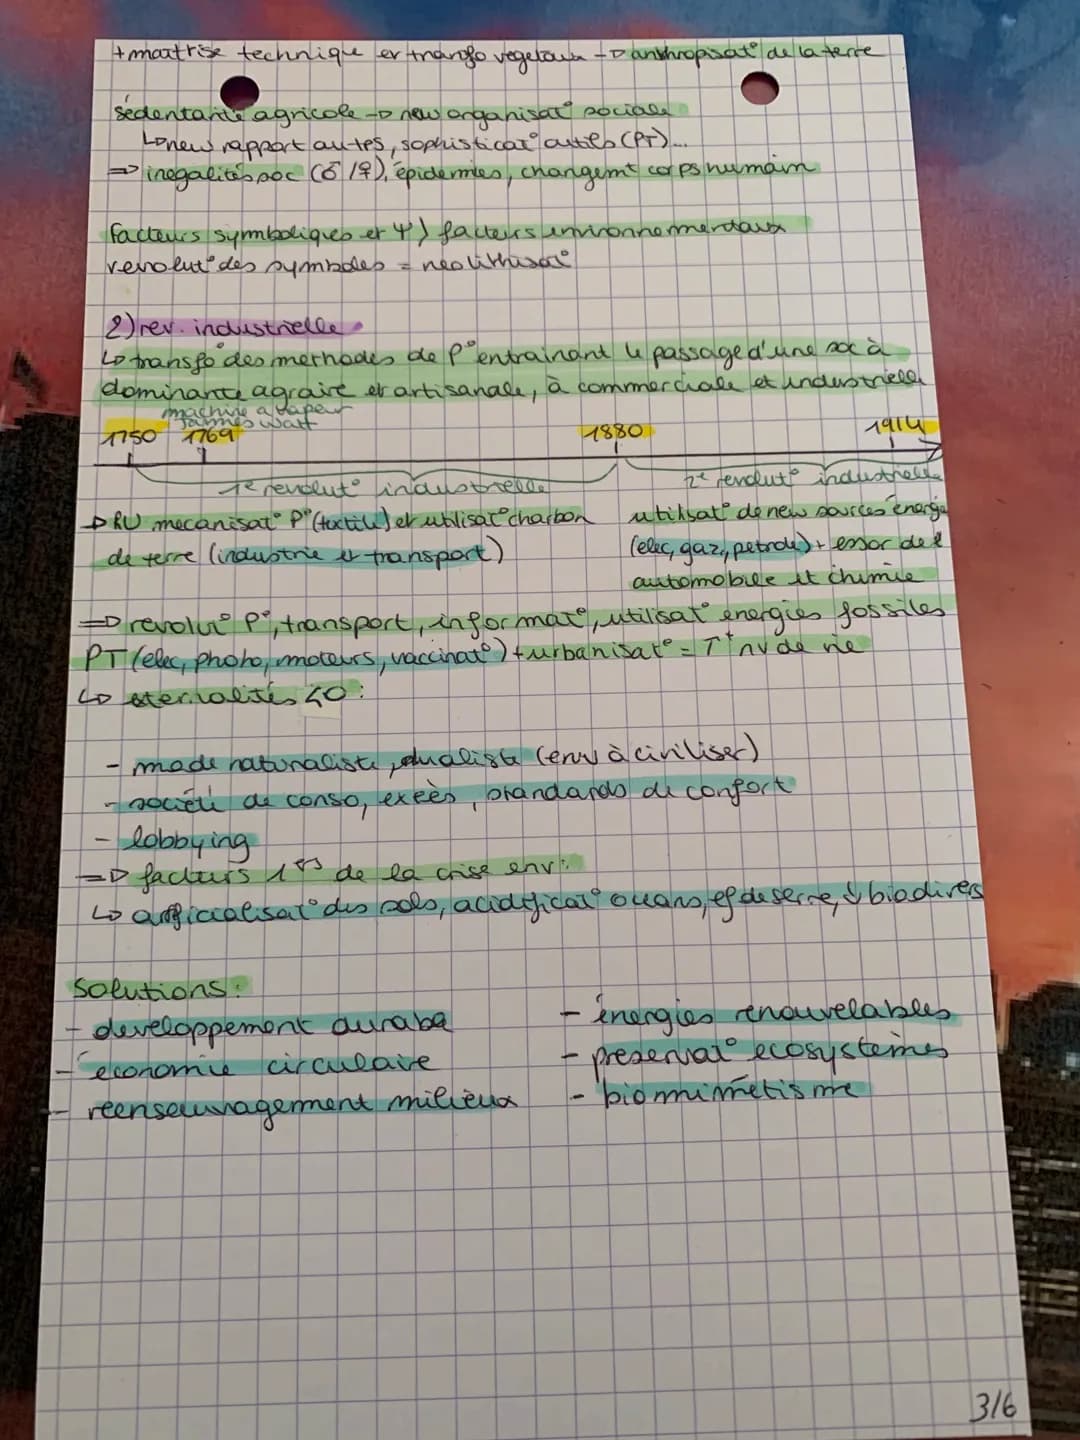 + maitrise technique et transfo vegetaux → anthropisat° de la terre
sédentarité agricole → new organisat° sociale
↳ new rapport autres, sophisticat° outils (PT)...
⇒ inégalités soc (♂/♀), épidémies, changemt corps humain
facteurs symboliques et Ψ > facteurs environnementaux
revolut° des symboles = neolithisat°
2) rev. industrielle
↳ transfo des methodes de P° entrainant le passage d'une soc à
dominante agraire et artisanale, à commerciale et industrielle
machine a vapeur
James Watt
1750 1769 1880 1914
1e revolut° industrielle 2e revolut° industrielle
→ RU mecanisat° P° (textile) et utilisat° charbon
de terre (industrie et transport)
utilisat° de new sources énergie
(elec, gaz, petrole) + essor de l
automobile et chimie
⇒ revolut° P°, transport, informat°, utilisat° energies fossiles
PT (elec, photo, moteurs, vaccinat°) + urbanisat° = T+ nv de vie
↳ externalités <0 :
- mode naturaliste, dualiste (env à civiliser)
- société de conso, excès, standards de confort
- lobbying
⇒ facteurs 1ers de la crise env :
↳ artificialisat° des sols, acidificat° oceans, ef de serre, ↓ biodivers
Solutions :
- developpement durable
- économie circulaire
- reensauvagement milieux
- énergies renouvelables
- preservat° ecosystemes
- biomimétisme
3/6